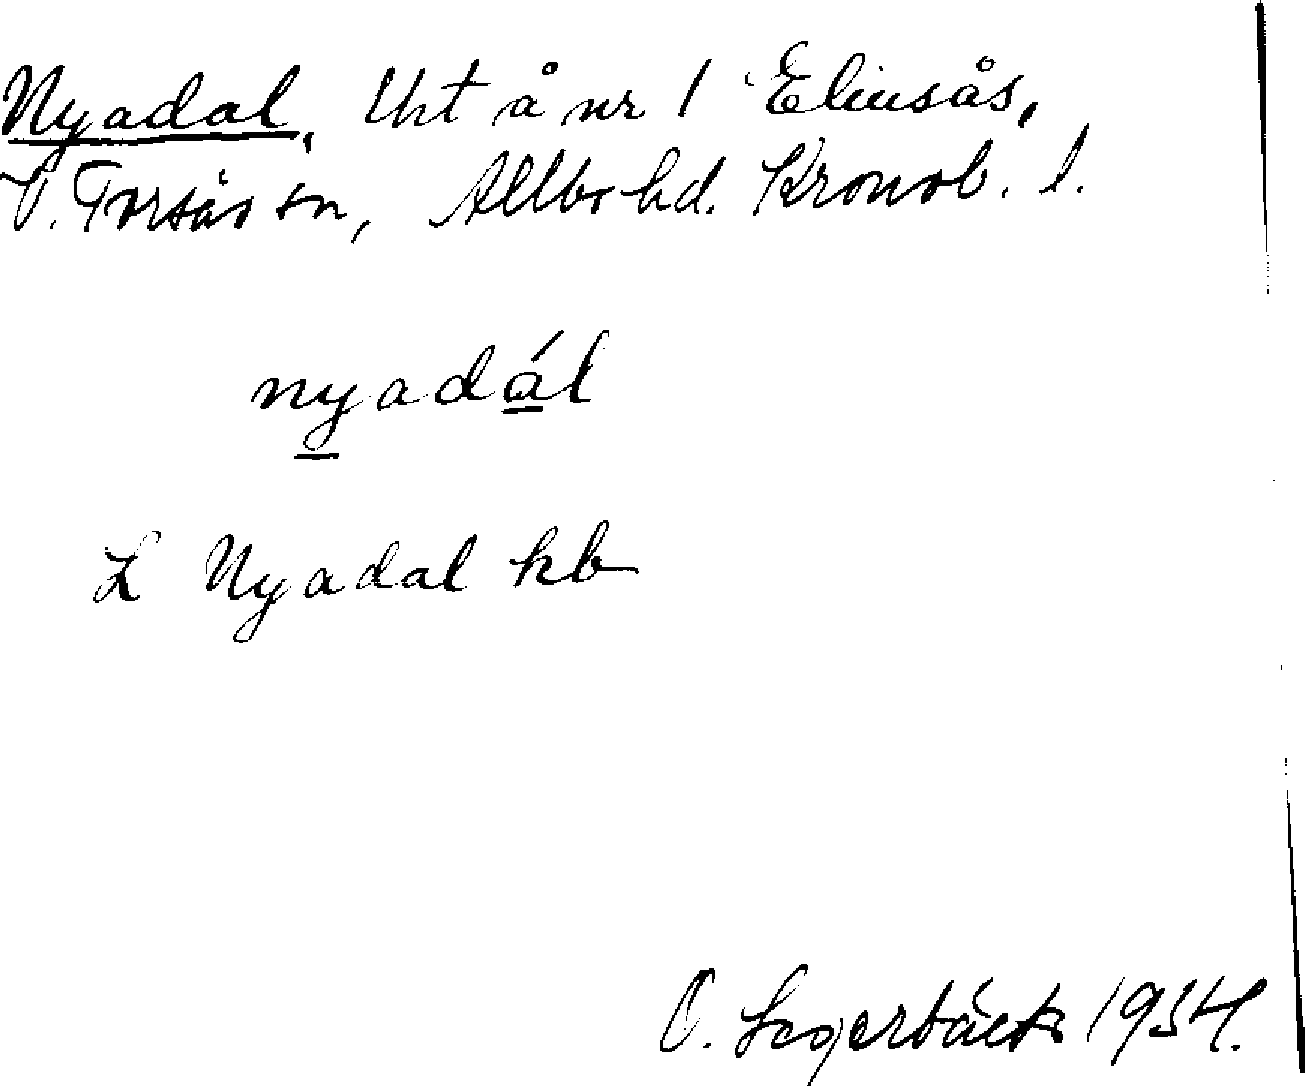 Nyadal, Uht å nr 1 Eliusås,
V. Torsås sn, Allbo hd. Kronob. l.
nyadál
L Nyadal hb
O. Segerbäck 1934.